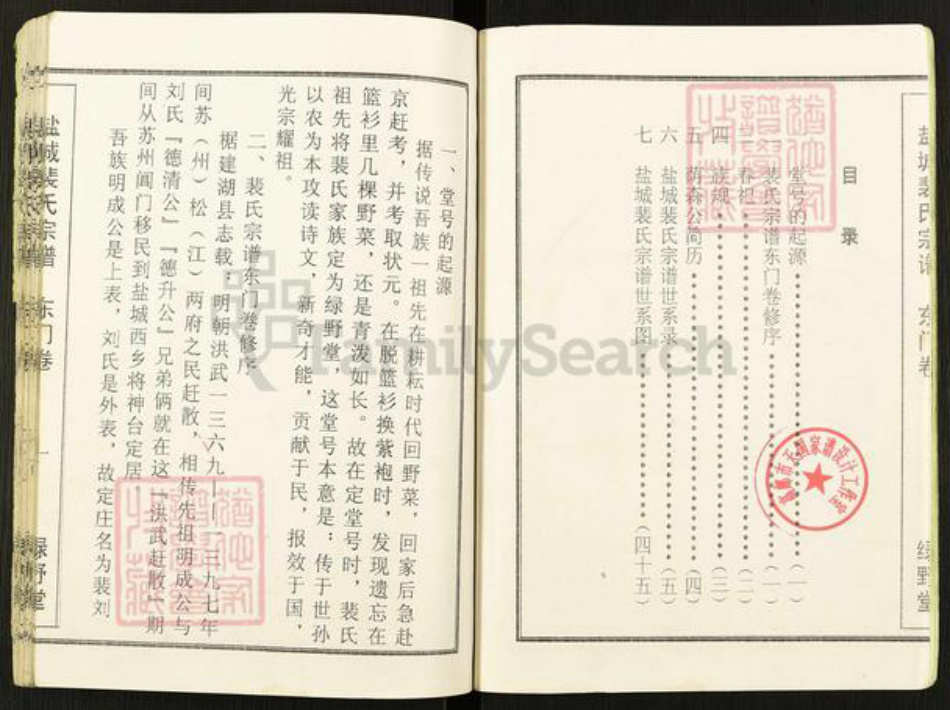 盐城裴氏宗谱 东门卷
绿野堂
目录
堂号的起源……(一)
裴氏宗谱东门卷修序……(一)
春祀……(二)
四 族规……(三)
五 荫森公简历……(四)
六 盐城裴氏宗谱世系录……(五)
七 盐城裴氏宗谱世系图……(四十五)
一、堂号的起源
据传说吾族一祖先在耕耘时代回野菜，回家后急赴
京赶考，并考取状元。在脱篮衫换紫袍时，发现遗忘在
篮衫里几棵野菜，还是青泼如长。故在定堂号时，裴氏
祖先将裴氏家族定为绿野堂，这堂号本意是：传于世孙
以农为本攻读诗文，新奇才能，贡献于民，报效于国，
光宗耀祖。
二、裴氏宗谱东门卷修序
据建湖县志载：明朝洪武一三六九——一三九七年
间苏（州）松（江）两府之民赶散，相传先祖明成公与
刘氏『德清公』『德升公』兄弟俩就在这『洪武赶散』期
间从苏州阊门移民到盐城西乡将神台定居
吾族明成公是上表，刘氏是外表，故定庄名为裴刘
盐城裴氏宗谱 东门卷
一
绿野堂
FamilySearch